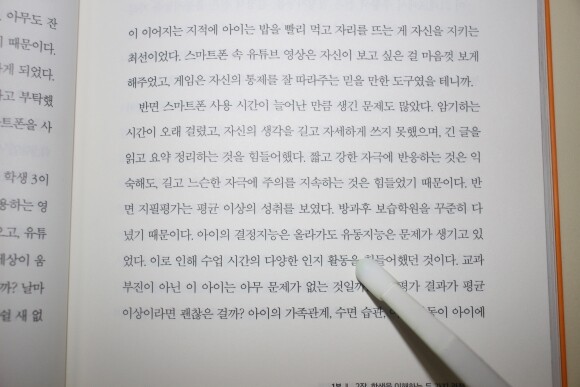 . 아무도 잔
때문이다.
하게 되었다.
라고 부탁했
마트폰을 사
학생 3이
용하는 영
으고, 유튜
세상이 움
까? 날마
쉴 새 없
이 이어지는 지적에 아이는 밥을 빨리 먹고 자리를 뜨는 게 자신을 지키는
최선이었다. 스마트폰 속 유튜브 영상은 자신이 보고 싶은 걸 마음껏 보게
해주었고, 게임은 자신의 통제를 잘 따라주는 믿을 만한 도구였을 테니까.
반면 스마트폰 사용 시간이 늘어난 만큼 생긴 문제도 많았다. 암기하는
시간이 오래 걸렸고, 자신의 생각을 길고 자세하게 쓰지 못했으며, 긴 글을
읽고 요약 정리하는 것을 힘들어했다. 짧고 강한 자극에 반응하는 것은 익
숙해도, 길고 느슨한 자극에 주의를 지속하는 것은 힘들었기 때문이다. 반
면 지필평가는 평균 이상의 성취를 보였다. 방과후 보습학원을 꾸준히 다
녔기 때문이다. 아이의 결정지능은 올라가도 유동지능은 문제가 생기고 있
었다. 이로 인해 수업 시간의 다양한 인지 활동을 힘들어했던 것이다. 교과
부진이 아닌 이 아이는 아무 문제가 없는 것일까 결과가 평균
이상이라면 괜찮은 걸까? 아이의 가족관계, 수면 습관, 이 아이에